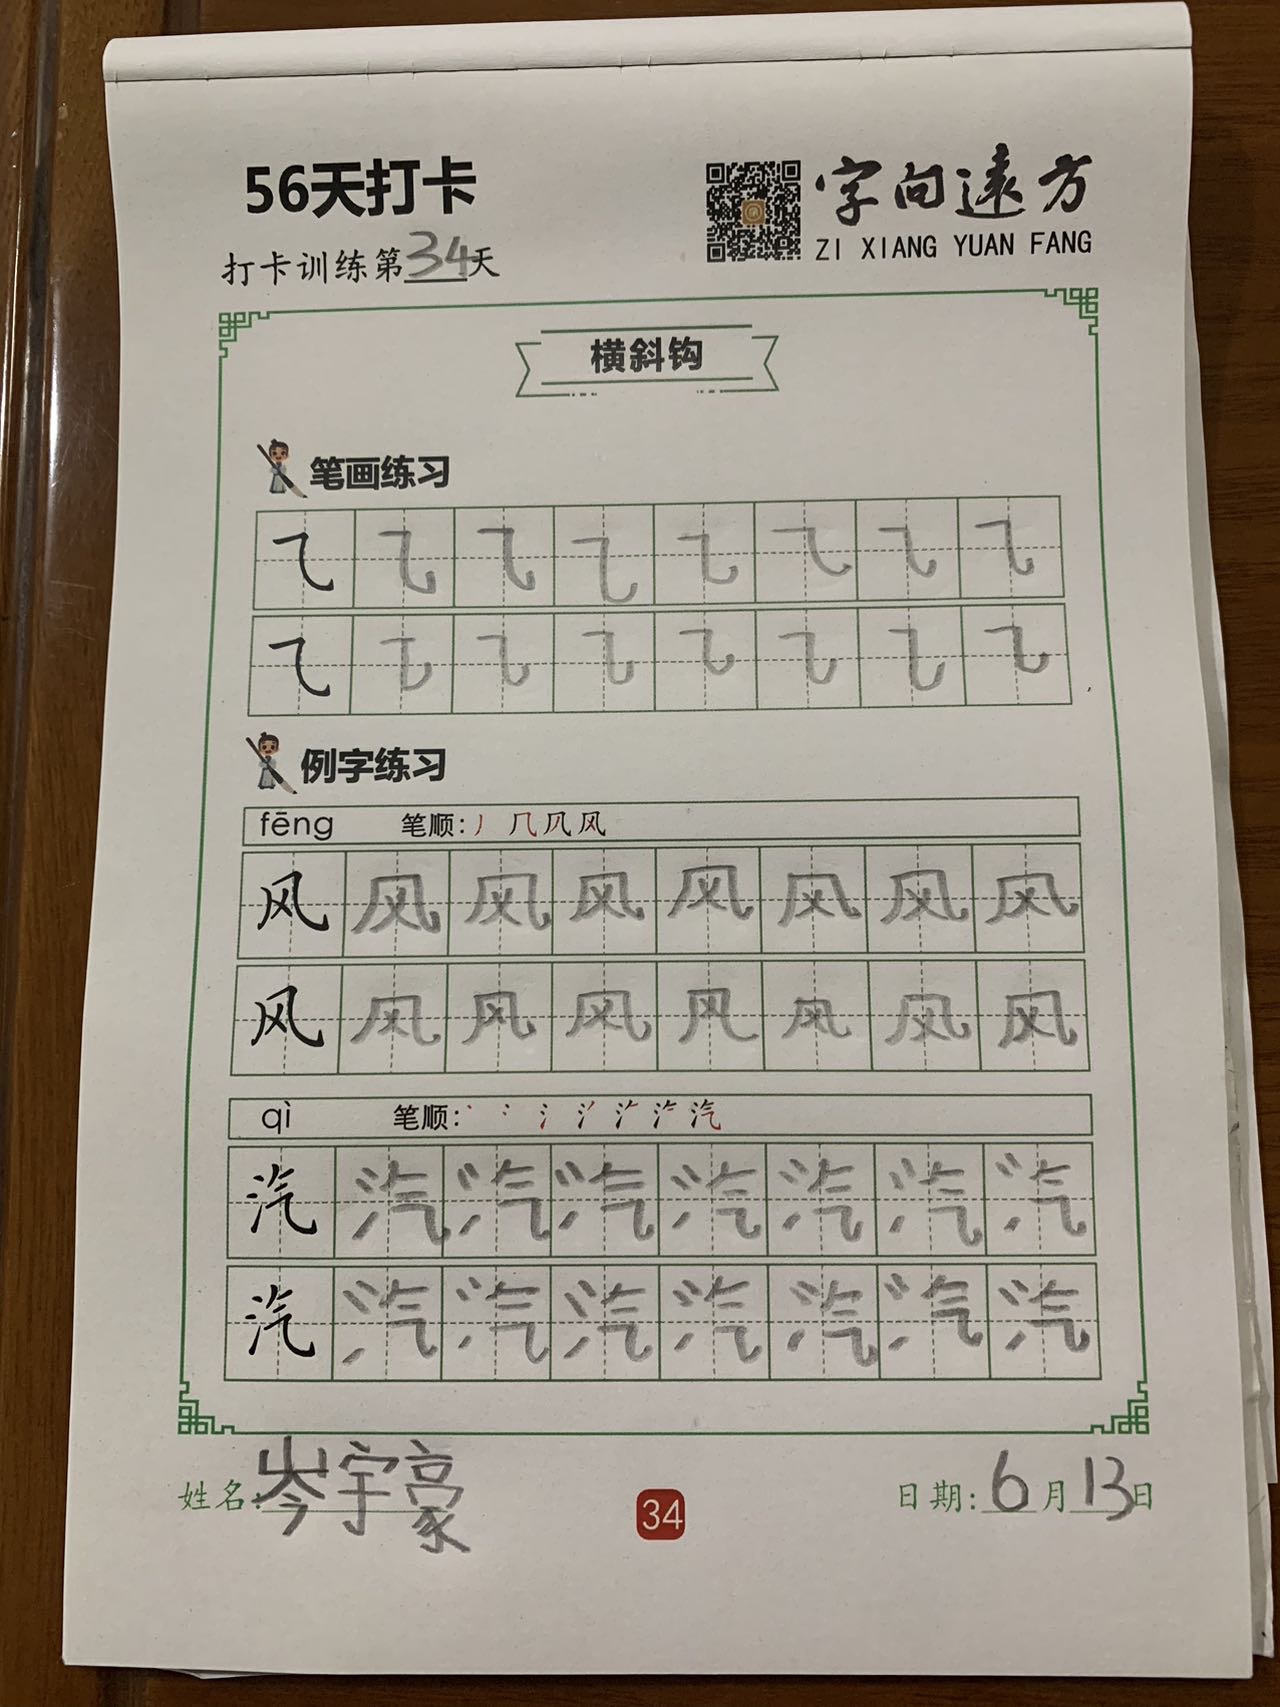 56天打卡
字向遠方
ZI XIANG YUAN FANG
打卡训练第34天
横斜钩
笔画练习
㇈ ㇈ ㇈ ㇈ ㇈ ㇈ ㇈ ㇈
㇈ ㇈ ㇈ ㇈ ㇈ ㇈ ㇈ ㇈
例字练习
fēng 笔顺: 丿 几 凤 风
风 风 风 风 风 风 风 风
风 风 风 风 风 风 风 风
qì 笔顺: 氵 汽
汽 汽 汽 汽 汽 汽 汽 汽
汽 汽 汽 汽 汽 汽 汽 汽
姓名: 岑宇豪
34
日期: 6月13日